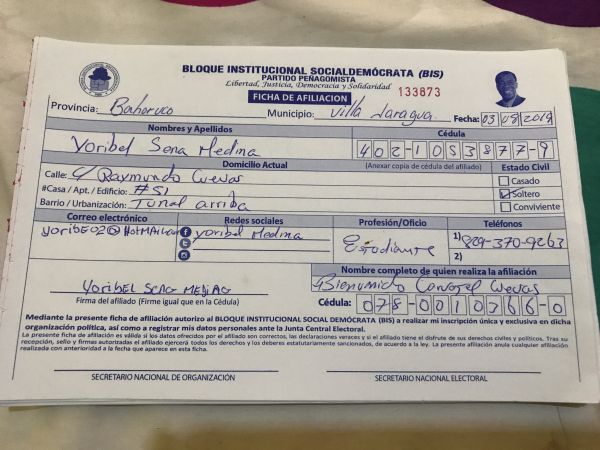 BLOQUE INSTITUCIONAL SOCIALDEMÓCRATA (BIS)
PARTIDO PEÑAGOMISTA
Libertad, Justicia, Democracia y Solidaridad
FICHA DE AFILIACION 133873
Provincia: Bahoruco Municipio: Villa Jaragua Fecha: 03/08/2019
Nombres y Apellidos Cédula
Yoribel Sena Medina 402-1053877-9
Domicilio Actual (Anexar copia de cédula del afiliado) Estado Civil
Calle: C/ Raymundo Cuevas Casado
#Casa / Apt. / Edificio: #51 Soltero
Barrio / Urbanización: Tunal arriba Conviviente
Correo electrónico Redes sociales Profesión/Oficio Teléfonos
yoribe02@HotMAil.com yoribel Medina Estudiante 1) 829-370-9263
2)
Nombre completo de quien realiza la afiliación
Bienvenido Cuevas
YoRibel Sena MeDiNa Cédula: 078-0010366-0
Firma del afiliado (Firme igual que en la Cédula)
Mediante la presente ficha de afiliación autorizo al BLOQUE INSTITUCIONAL SOCIAL DEMÓCRATA (BIS) a realizar mi inscripción única y exclusiva en dicha
organización política, así como a registrar mis datos personales ante la Junta Central Electoral.
La presente ficha de afiliación es válida si los datos ofrecidos por el afiliado son correctos, las declaraciones veraces y si el afiliado tiene el disfrute de sus derechos civiles y políticos. Tras su
recepción, sello y firmas autorizadas el afiliado ejercerá todos los derechos y los deberes estatutariamente sancionados, de acuerdo a la ley. La presente afiliación anula cualquier afiliación
realizada con anterioridad a la fecha que aparece en esta ficha.
SECRETARIO NACIONAL DE ORGANIZACIÓN SECRETARIO NACIONAL ELECTORAL